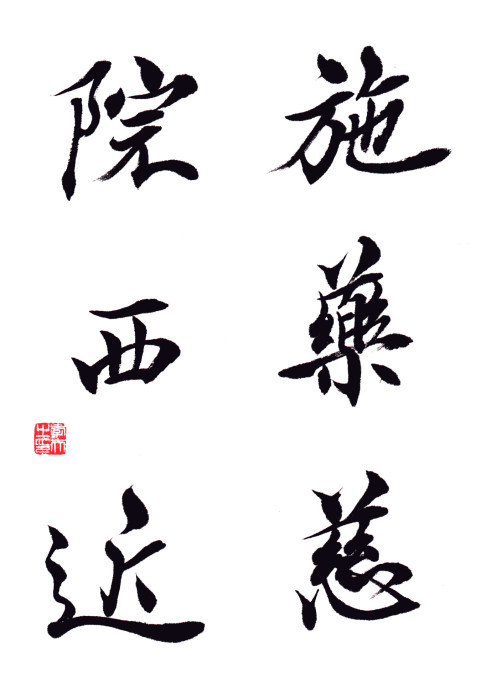 施藥慈
院西近